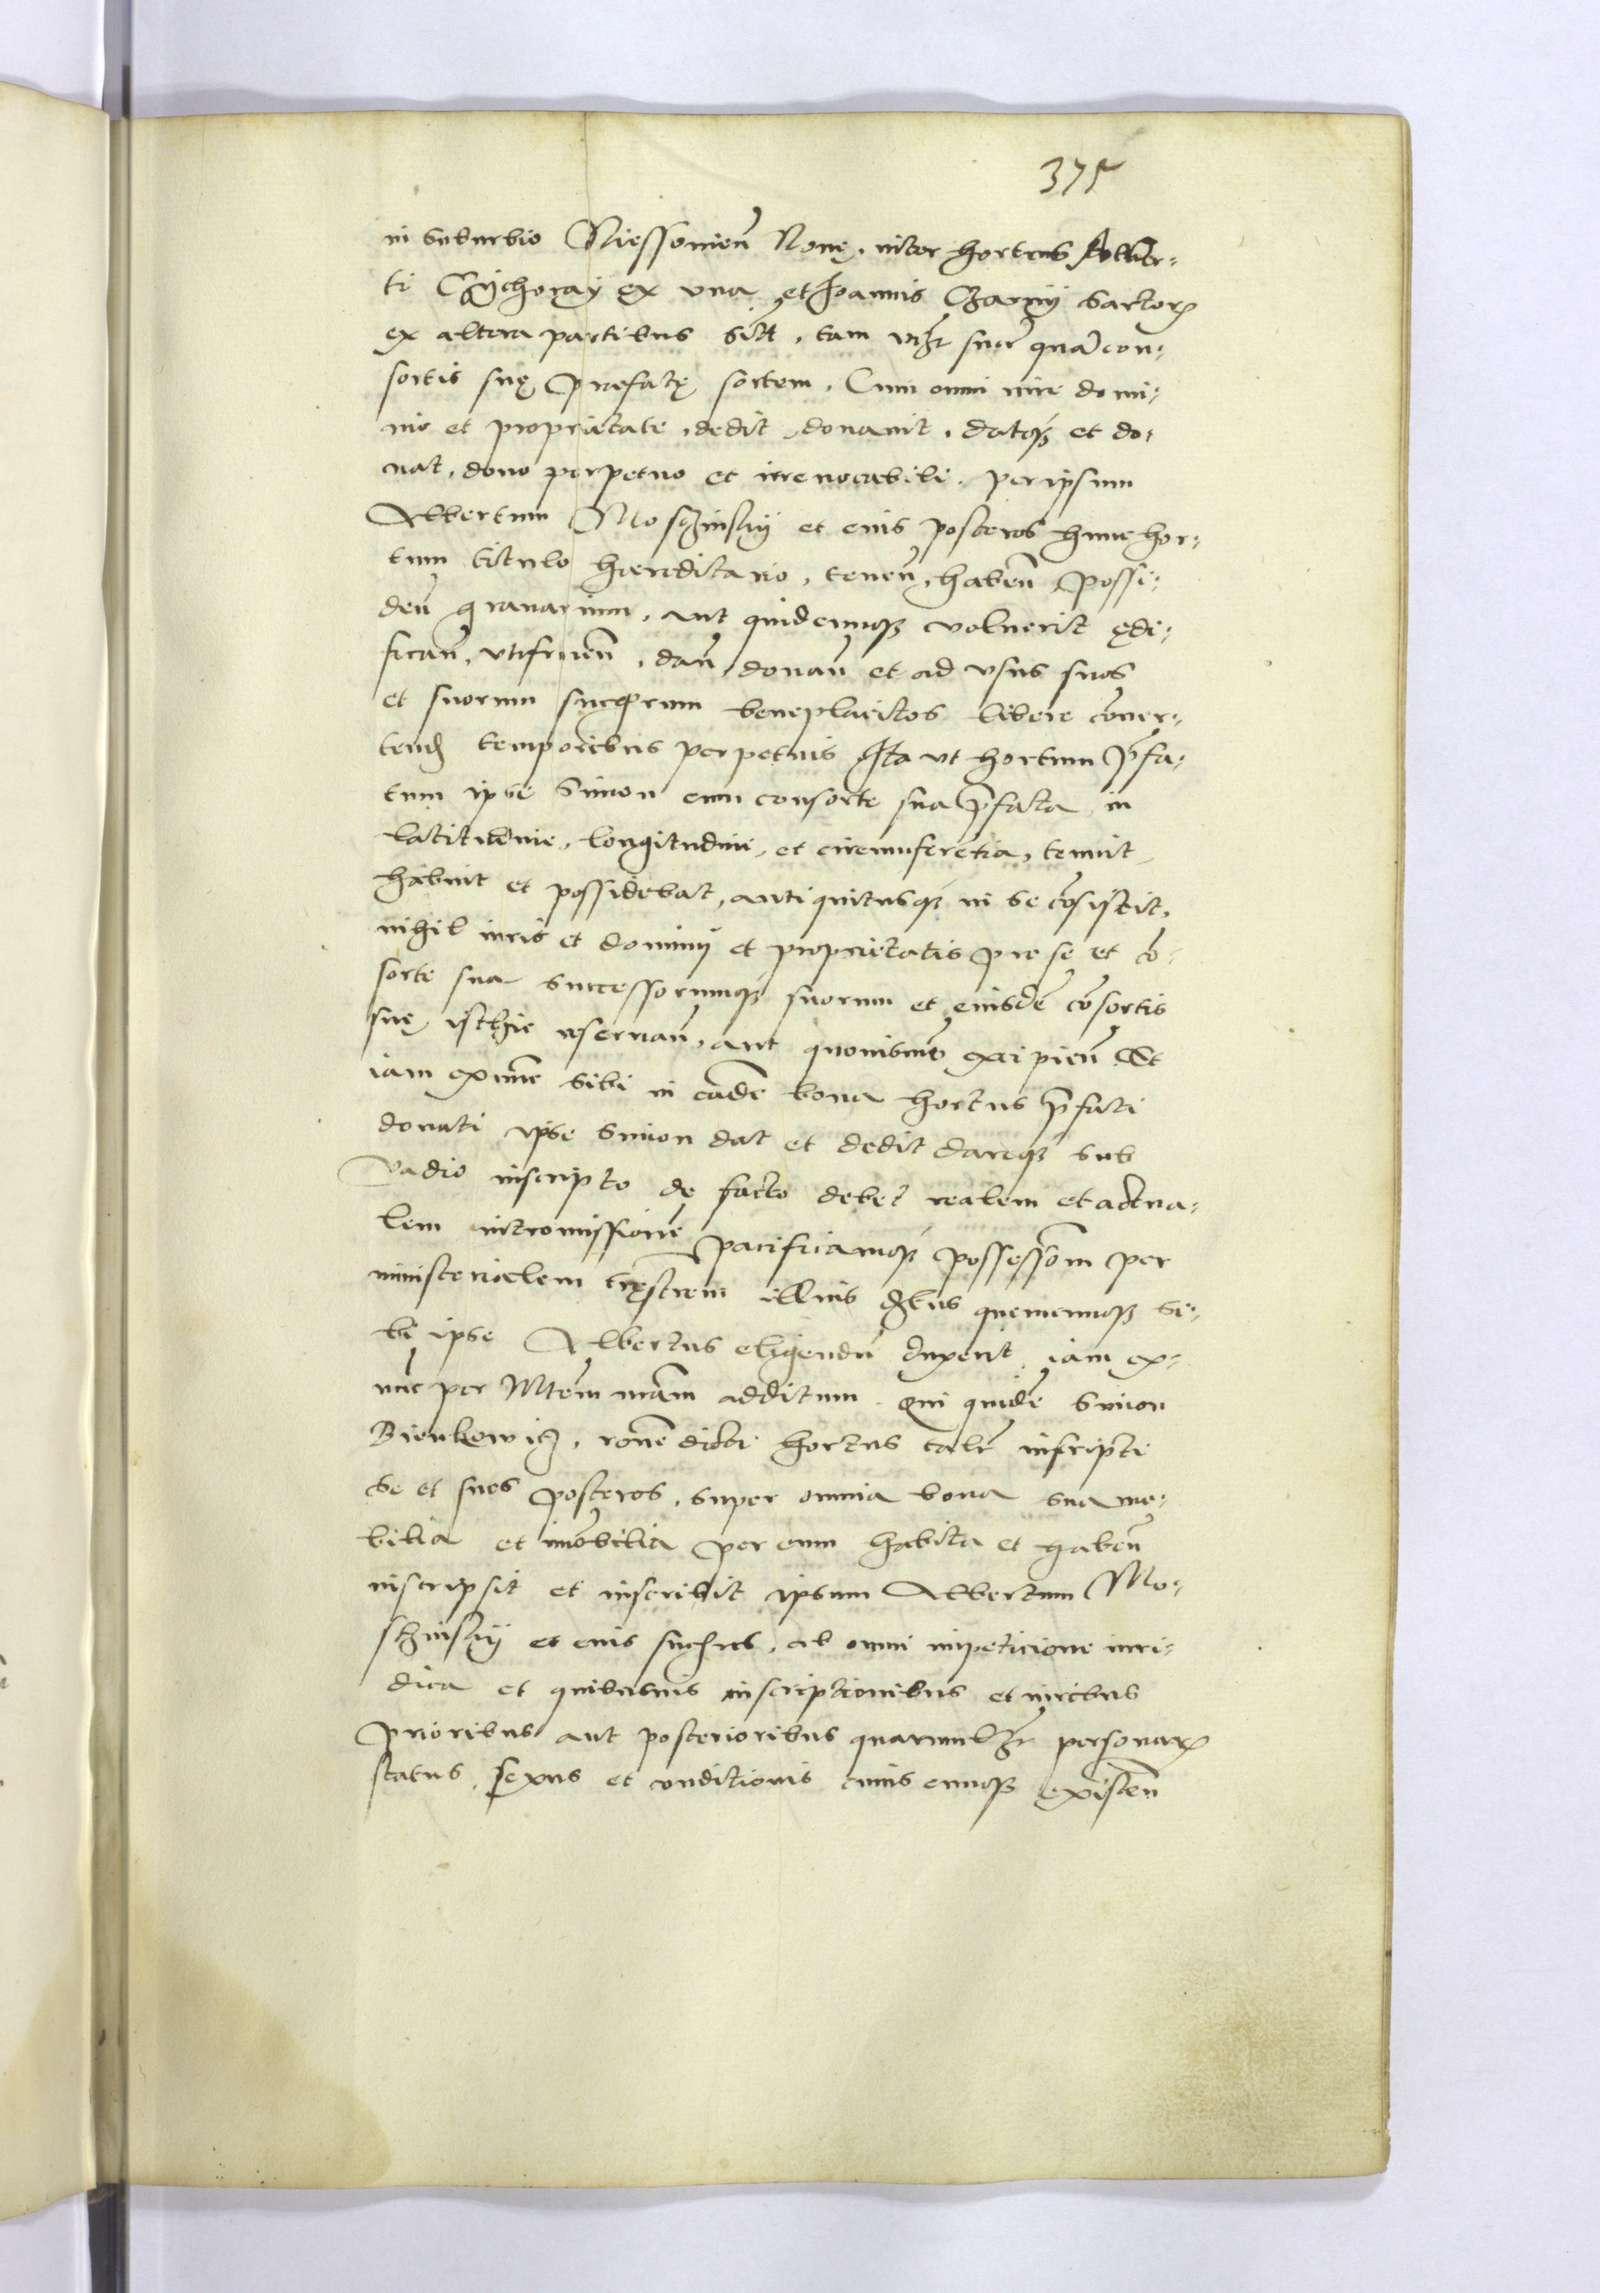 375
in suburbio Niessouien̄ Nouę, inter hortus Alber⸗
ti Czychoray ex una et Joannis Czarny sartor
ex altera partibus sitt, tam vr̄z suā quā con⸗
sortis suę prefatę sortem, Cum omni iure domi⸗
nio et proprietate, dedit donauit, datqз et do⸗
nat, dono perpetuo et irreuocabili, per ipsum
Albertum Mosczinsky et eius posteros hunc hor⸗
tum titulo hæreditario, tenen̄, haben̄ possi⸗
den̄ granarium, aut quidcunqз voluerit ędi⸗
fican̄, vtifruen̄, dan̄ donan̄ et ad vsus suos
et suorum succ̄rum beneplacitos libere cōuer⸗
tend temporibus perpetuis Ita ut hortum p̄fa⸗
tum ipse Simon cum consorte sua p̄fata in
latitudine, longitudine, et circumferētia, tenuit
habuit et possidebat, antiquitusqз in se cōsistit,
nihil iuris et dominij et proprietatis pro se et cō⸗
sorte sua successorumqз suorum et eiusdē cōsortis
suę isthic reseruan̄, aut quouismō excipien̄ Et
iam exnūc sibi in eādē bona hortus p̄fati
donati ipse Simon dat et dedit dareqз sub
vadio inscripto de facto debet realem et actua⸗
lem intromissionē pacificamqз possessiōm per
ministerialem tręstrem illius dr̄tus quemcunqз si⸗
bi ipse Albertus eligendū duxerit iam ex⸗
nūc per Mtem nr̄am additum Qui quidē Simon
Bienkowicz, rōne dicti hortus talr̄ inscripti
se et suos posteros, super omnia bona sua mo⸗
bilia et imōbilia per eum habita et haben̄
inscripsit et inscribit ipsum Albertum Mo⸗
sczinsky et eius succ̄res, ab omni impeticione iuri⸗
dica et quibusuis inscriptionibus et iuribus
prioribus aut posterioribus quarumlz̄ personar
status, sexus et conditionis cuius cunqз existen̄